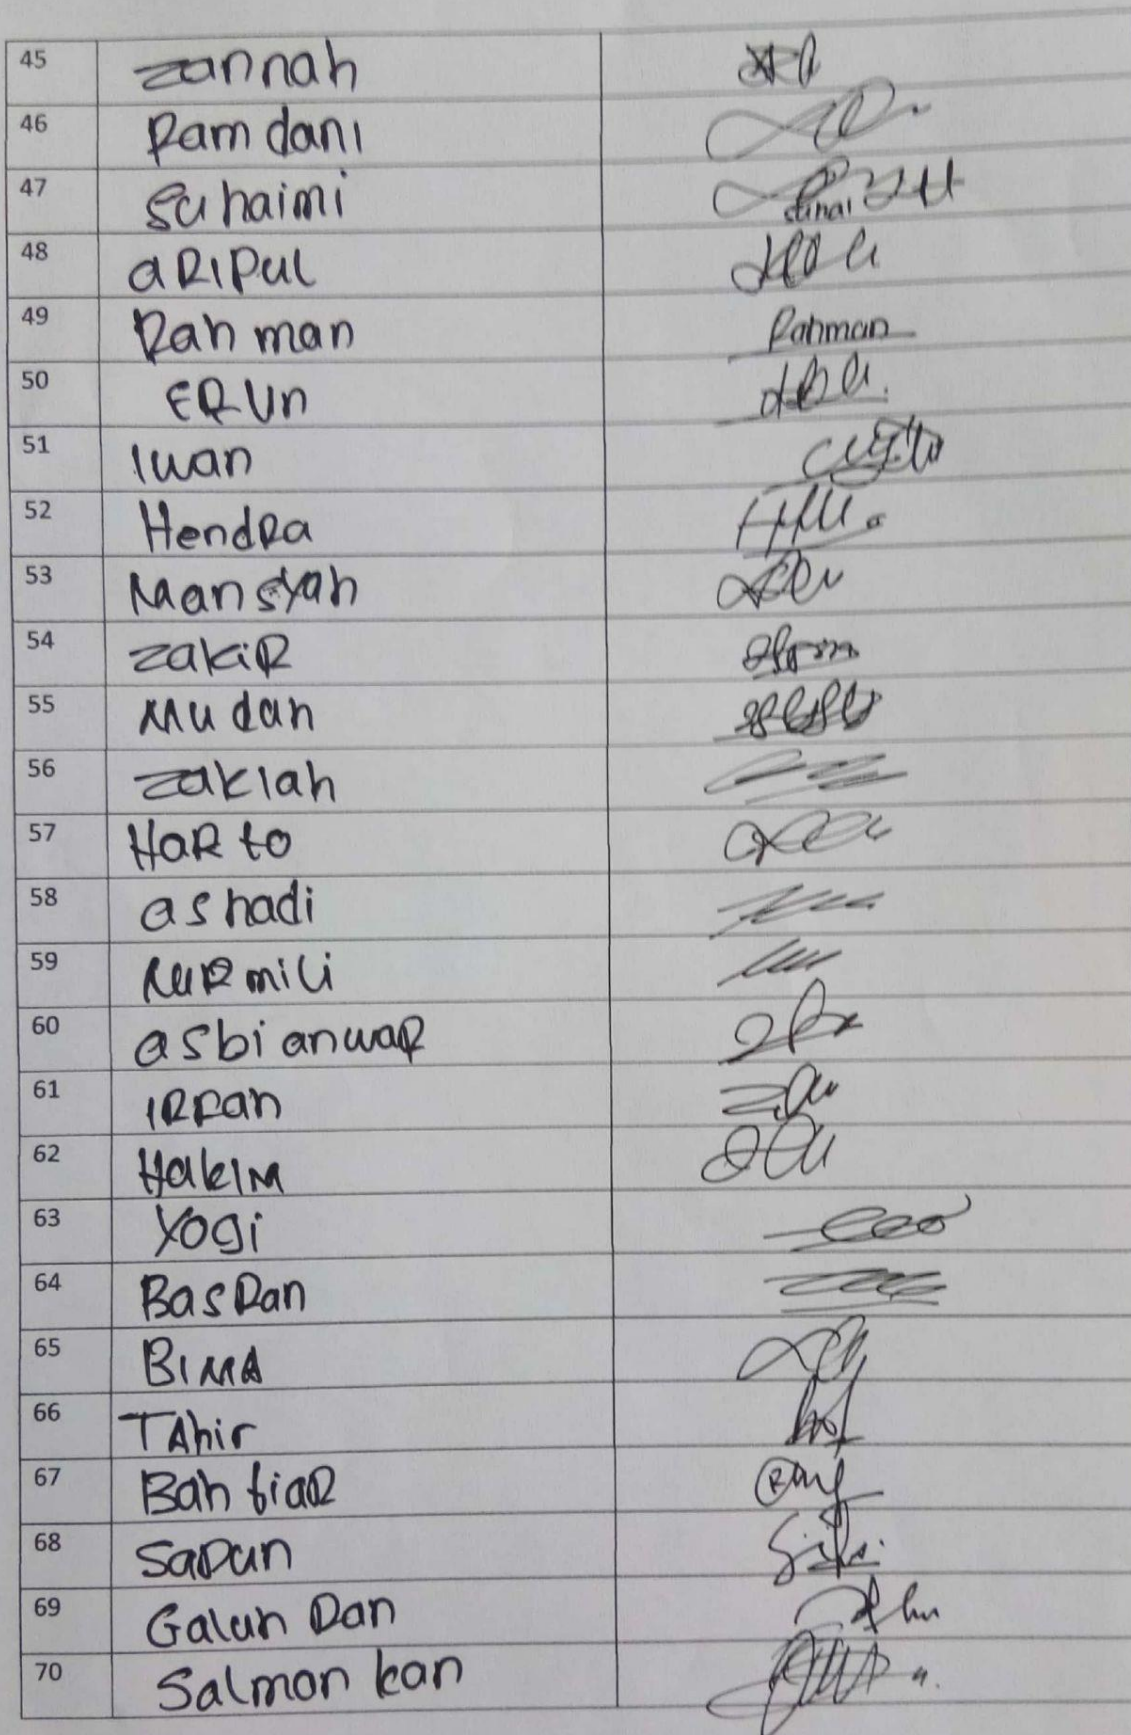 45 zannah
46 Ramdani
47 Suhaimi
48 aRIPul
49 Rahman Rahman
50 ERUn
51 Iwan
52 HendRa
53 Mansyah
54 zakiR
55 Mudah
56 zakiah
57 HaRto
58 ashadi
59 NuRmili
60 asbi anwaR
61
62 HakIM
63 Yogi
64 BasRan
65 BIMA
66 TAhir
67 BahtiaR
68
69
70 Salman kan